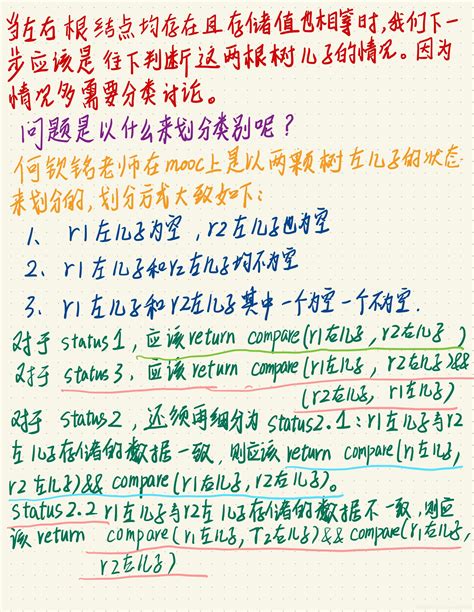 当左右根结点均存在且存储值也相等时,我们下一
步应该是往下判断这两根树儿子的情况。因为
情况多需要分类讨论。
问题是以什么来划分类别呢?
何钦铭老师在mooc上是以两颗树左儿子的状态
来划分的,划分方式大致如下:
1、r1左儿子为空,r2左儿子也为空
2、r1左儿子和r2左儿子均不为空
3、r1左儿子和r2左儿子其中一个为空一个不为空.
对于status1,应该return compare(r1右儿子,r2右儿子)
对于status3.应该return compare(r1左儿子,r2右儿子)&&
(r2左儿子,r1右儿子)
对于status2,还须再细分为status2.1:r1左儿子与r2
左儿子存储的数据一致,则应该return compare(r1左儿子,
r2左儿子)&& compare(r1右儿子,r2右儿子)。
status2.2 r1左儿子与r2左儿子存储的数据不一致,则应
该return compare(r1左儿子,r2右儿子)&&compare(r1右儿子,
r2左儿子)